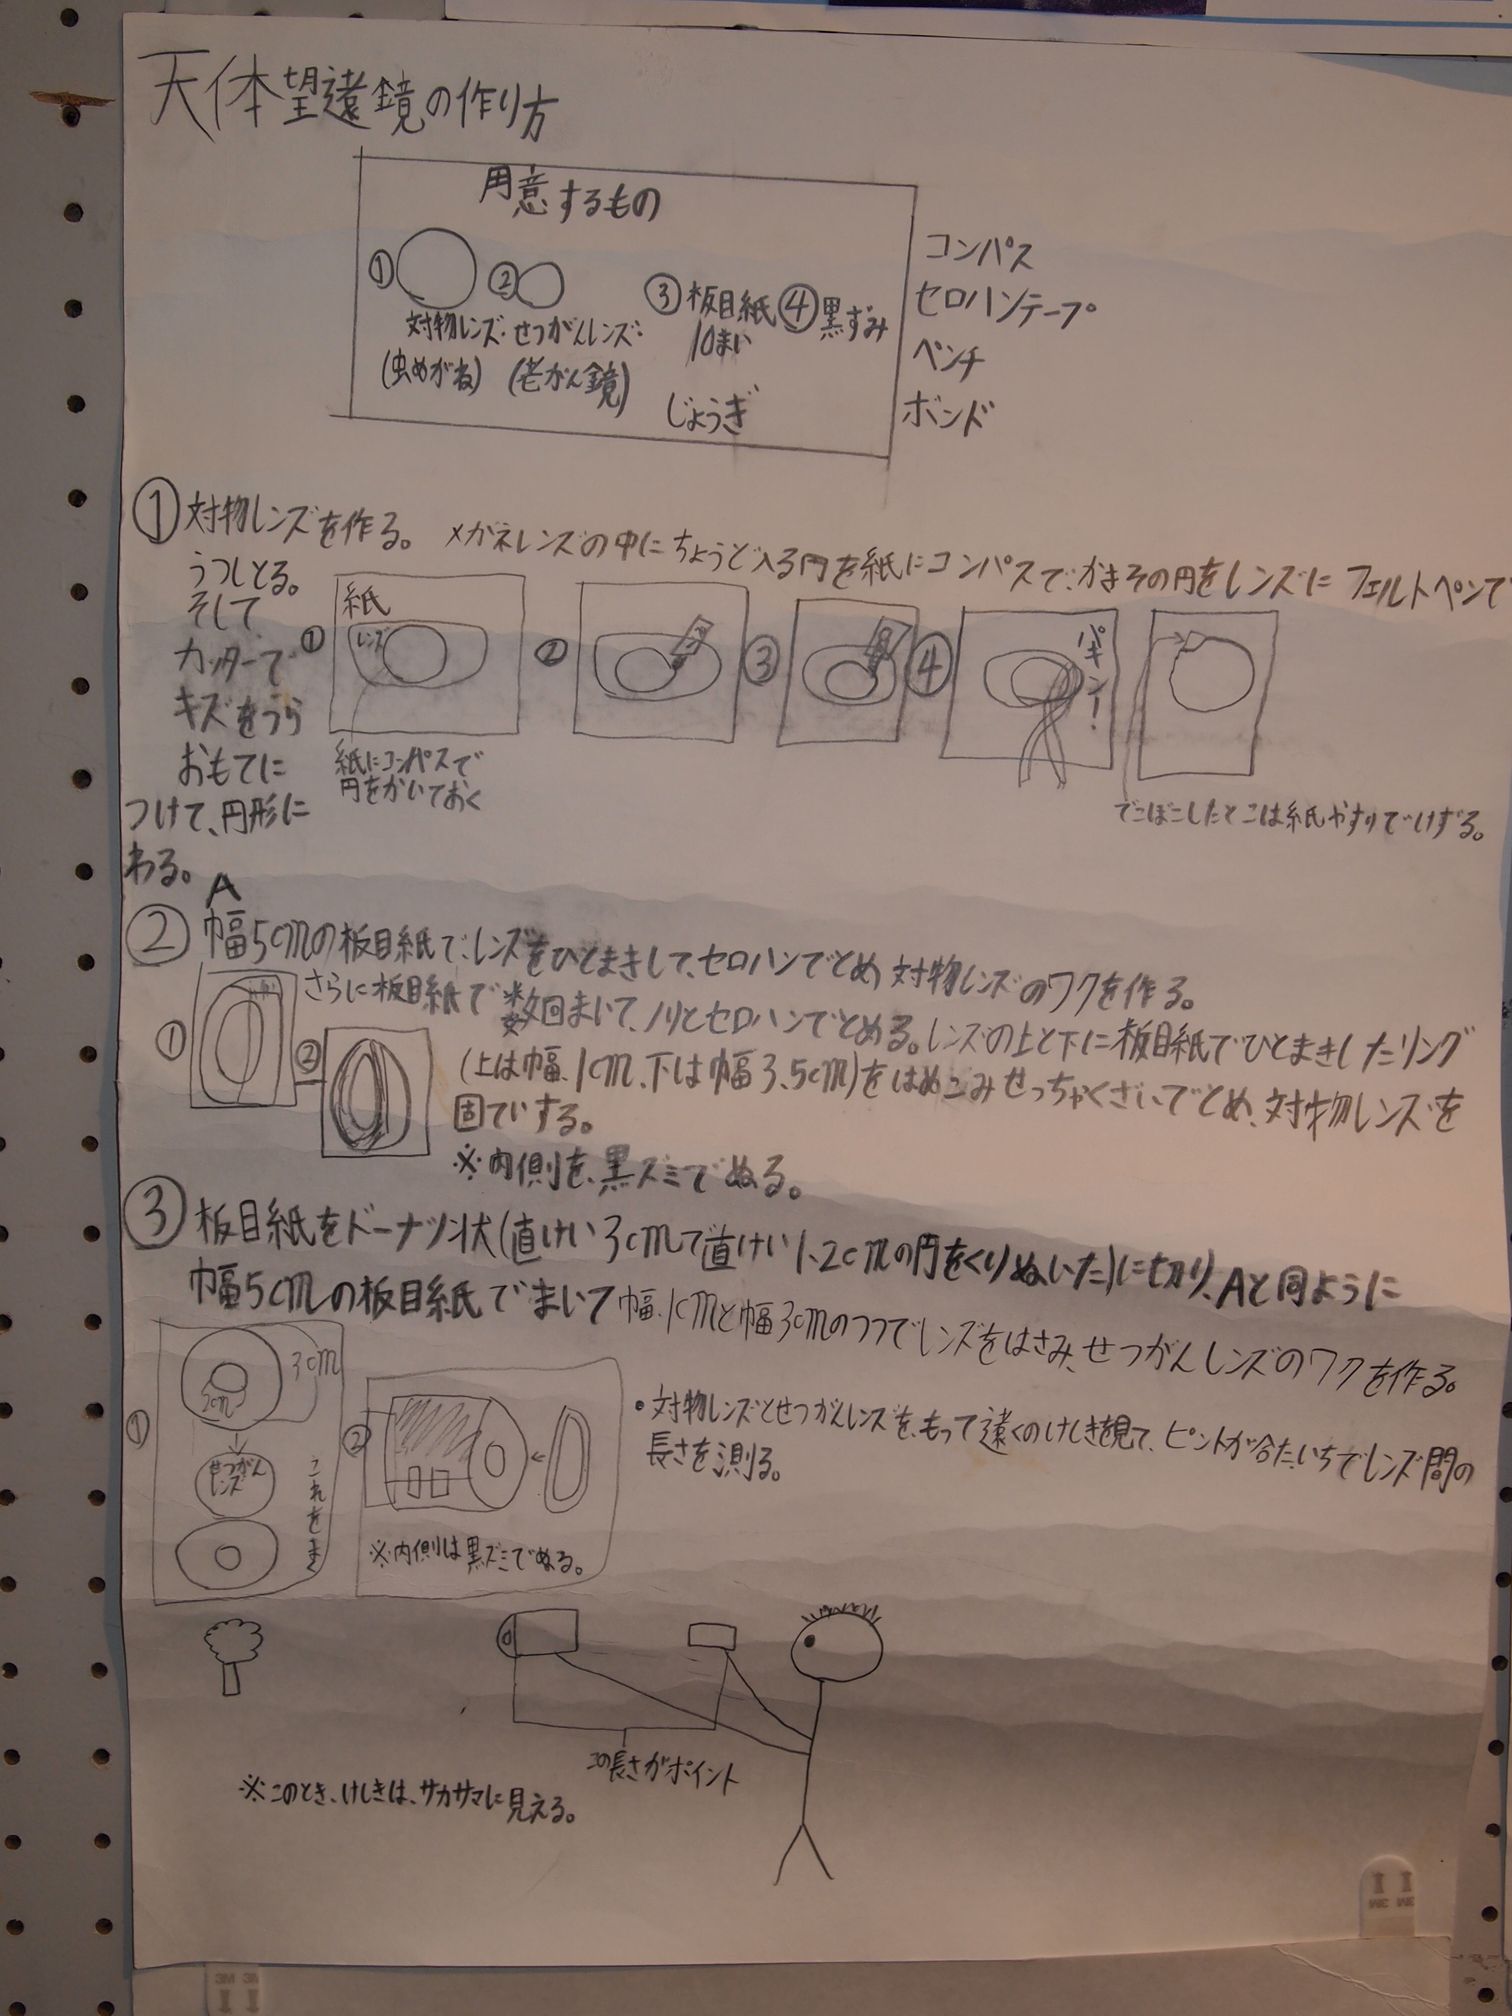 天体望遠鏡の作り方
用意するもの
①
②
対物レンズ
(虫めがね)
せつがんレンズ
(老がん鏡)
③板目紙
10まい
④黒ずみ
じょうぎ
コンパス
セロハンテープ
ペンチ
ボンド
①対物レンズを作る。メガネレンズの中にちょうど入る円を紙にコンパスで、かきその円をレンズにフェルトペンで
うつしとる。
そして、
カッターで
キズをうら
おもてに
つけて、円形に
わる。
①
紙
レンズ
紙にコンパスで
円をかいておく
②
③
④
パキン!
でこぼこしたとこは紙やすりでけずる。
A
②幅5cmの板目紙で、レンズをひとまきして、セロハンでとめ対物レンズのワクを作る。
さらに板目紙で数回まいて、ノリとセロハンでとめる。レンズの上と下に板目紙でひとまきしたリング
(上は幅、1cm、下は幅3、5cm)をはめこみせっちゃくざいでとめ、対物レンズを
固ていする。
※内側を、黒ズミでぬる。
①
②
③板目紙をドーナツ状(直けい3cmで直けい1、2cmの円をくりぬいた)に切り、Aと同ように
幅5cmの板目紙でまいて幅、1cmと幅3cmのつつでレンズをはさみ、せつがんレンズのワクを作る。
①
3cm
2cm
せつがん
レンズ
これをまく
②
※内側は黒ズミでぬる。
•対物レンズとせつがんレンズを、もって遠くのけしきを見て、ピントが合た、いちでレンズ間の
長さを測る。
この長さがポイント
※このとき、けしきは、サカサマに見える。
3M
3M
3M
3M